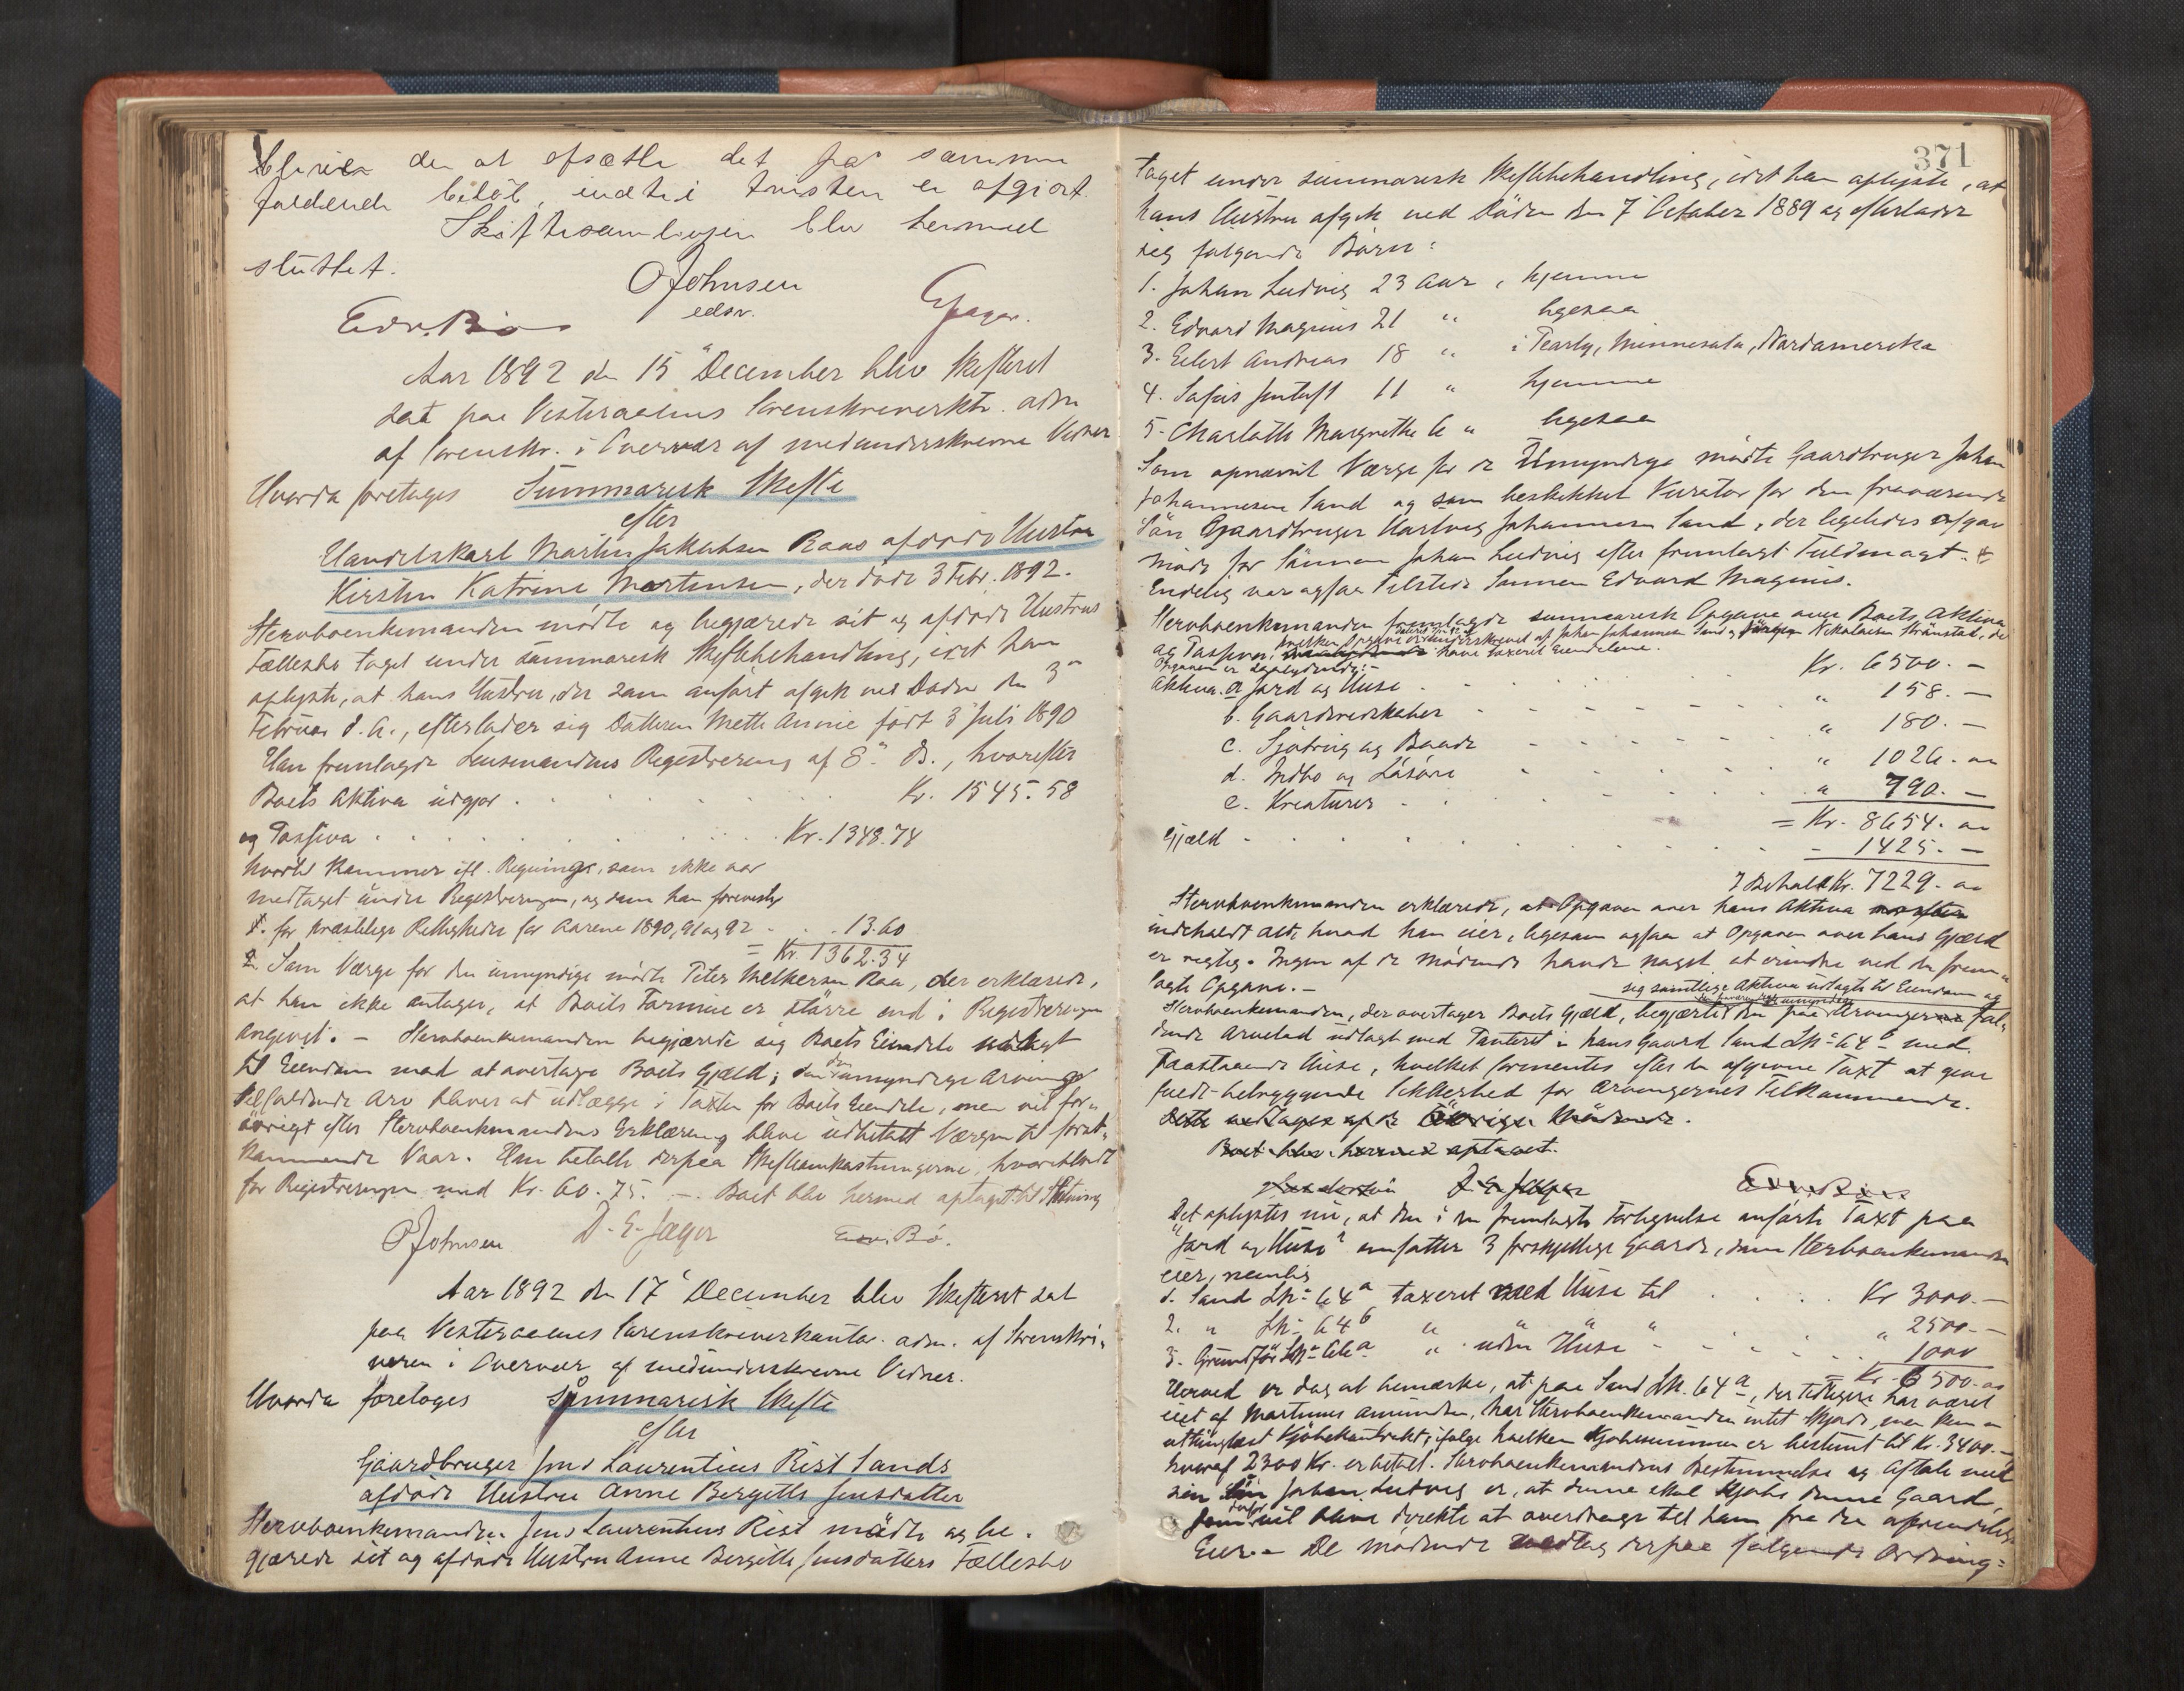 bliver den at afsætte det paa samme
faldende beløb, indtil tvisten er afgjort.
Skiftesamlingen blev hermed
sluttet.
OJohnsen
edsv.
Edv. Bø
Jæger.
Aar 1892 den 15de December blev Skifteret
sat paa Vesteraalens Sorenskriverktr. adm
af Sorenskr. i Overvær af medunderskrevne Vidner
Hvorda foretages Summarisk Skifte
efter
Handelskarl Martin Jakobsen Raas afdøde Hustru
Kirstin Katrine Martinsen, der døde 3 Febr. 1892.
Stervboenkemanden mødte og begjærede sit og afdøde Hustrus
Fællesbo taget under summarisk Skiftebehandling, idet han
oplyste, at hans Hustru, der som anført afgik ved Døden den 3die
Februar d. A., efterlader sig Datteren Mette Annie født 3 Juli 1890
Han fremlagde Lensmandens Registrering af 8de ds., hvorefter
Boets Aktiva udgjør . . . Kr. 1545.58
og Passiva . . . Kr. 1348.74
hvortil kommer ifl. Regninger, som ikke var
medtaget under Registreringen, og som han foreviste
for præstelige Rettigheder for Aarene 1890, 91 og 92 . . 13.60
= Kr. 1362.34
Som Værge for den umyndige mødte Peter Melkersen Raa, der erklærede,
at han ikke antager, at Boets Formue er større end i Registreringen
angivet. – Stervboenkemanden begjærede sig Boets Eiendele udlagt
til Eiendom mod at overtage Boets Gjæld; den umyndige Arvings
tilfaldende Arv bliver at udlægge i Taxten for Boets Eiendele, men vil for-
øvrigt efter Stervboenkemandens Erklæring blive udbetalt Værgen til først-
kommende Vaar. Han betalte derpaa Skifteomkostningerne, hvoriblandt
for Registreringen med Kr. 60.75. – Boet blev hermed optaget til Slutning
OJohnsen D. E. Jæger Edv. Bø.
Aar 1892 den 17de December blev Skifteret sat
paa Vesteraalens Sorenskriverkontor adm. af Sorenskri-
veren i Overvær af medunderskrevne Vidner.
Hvorda foretages Summarisk Skifte
efter
Gaardbruger Jens Laurentius Rist Sands
afdøde Hustru Anne Bergitte Jensdatter
Stervboenkemanden Jens Laurentius Rist mødte og be-
gjærede sit og afdøde Hustru Anne Bergitte Jensdatters Fællesbo
371
taget under summarisk Skiftebehandling, idet han oplyste, at
hans Hustru afgik ved Døden den 7 October 1889 og efterlader
sig følgende Børn:
1. Johan Ludvig 23 Aar, hjemme
2. Edvard Magnus 21 " ligesaa
3. Eilert Andreas 18 " i Pearly, Minnesota, Nordamerika
4. Sofus 11 " hjemme
5. Charlotte Margrethe 6 " ligesaa
Som opnævnt Værge for de Umyndige mødte Gaardbruger Johan
Johannesen Sand og som beskikket Kurator for den fraværende
Søn Gaardbruger Hartvig Johannesen Sand, der ligeledes afgav
Møde for Sønnen Johan Ludvig efter fremlagt Fuldmagt.
Endelig var ogsaa tilstede Sønnen Edvard Magnus.
Stervboenkemanden fremlagde summarisk Opgave over Boets Aktiva
og Passiva, hvilken Opgave er underskrevet af Johan Johannesen Sand og Nikolaisen, der
have taxeret Eiendelene.
Opgaven er saalydende: –
Aktiva. a Jord og Huse . . . Kr. 6500. –
b. Gaardsredskaber . . . " 158. –
c. Sjøbrug og Baade . . . " 180. –
d. Indbo og Løsøre . . . " 1026. "
e. Kreaturer . . . " 790. –
= Kr. 8654. "
Gjæld . . . 1425. –
I Behold Kr. 7229. "
Stervboenkemanden erklærede, at Opgaven over hans Aktiva
indeholdt alt, hvad han eier, ligesom ogsaa at Opgaven over hans Gjæld
er rigtig. Ingen af de mødende havde noget at erindre ved den frem-
lagte Opgave. –
sig samtlige Aktiva udlagte til Eiendom og
Stervboenkemanden, der overtager Boets Gjæld, begjærte den paa Arvingerne fal-
dende Arvelod udlagt med Panteret i hans Gaard Sand LNo 64b med
paastaaende Huse, hvilket formentes efter den afgivne Taxt at give
fuldt betryggende Sikkerhed for Arvingernes Tilkommende.
Dette vedtages af de øvrige Mødende.
Boet blev hermed optaget.
D. E. Jæger Edv. Bø
Det oplystes nu, at den i den fremlagte Fortegnelse anførte Taxt paa
"Jord og Huse" omfatter 3 forskjellige Gaarde, som Stervboenkemanden
eier, nemlig
1. Sand LNo 64a taxeret med Huse til . . . Kr 3000. –
2. " LNo 64b " " " " . . . " 2500. –
3. Grundfør LNo 66a " uden Huse . . . " 1000
= Kr. 6500. "
Herved er dog at bemærke, at paa Sand LNo 64a, der tidligere har været
eiet af Martinus Amundsen, har Stervboenkemanden intet Skjøde, men kun en
uthinglæst Kjøbekontrakt, ifølge hvilken Kjøbesummen er bestemt til Kr. 3400. –
hvoraf 2300 Kr. er betalt. Stervboenkemandens Bestemmelse og Aftale med
sin Søn Johan Ludvig er, at denne skal kjøbe denne Gaard,
som vil blive direkte at overdrage til ham fra den oprindelige
Eier. – De mødende vedtog derpaa følgende Ordning: